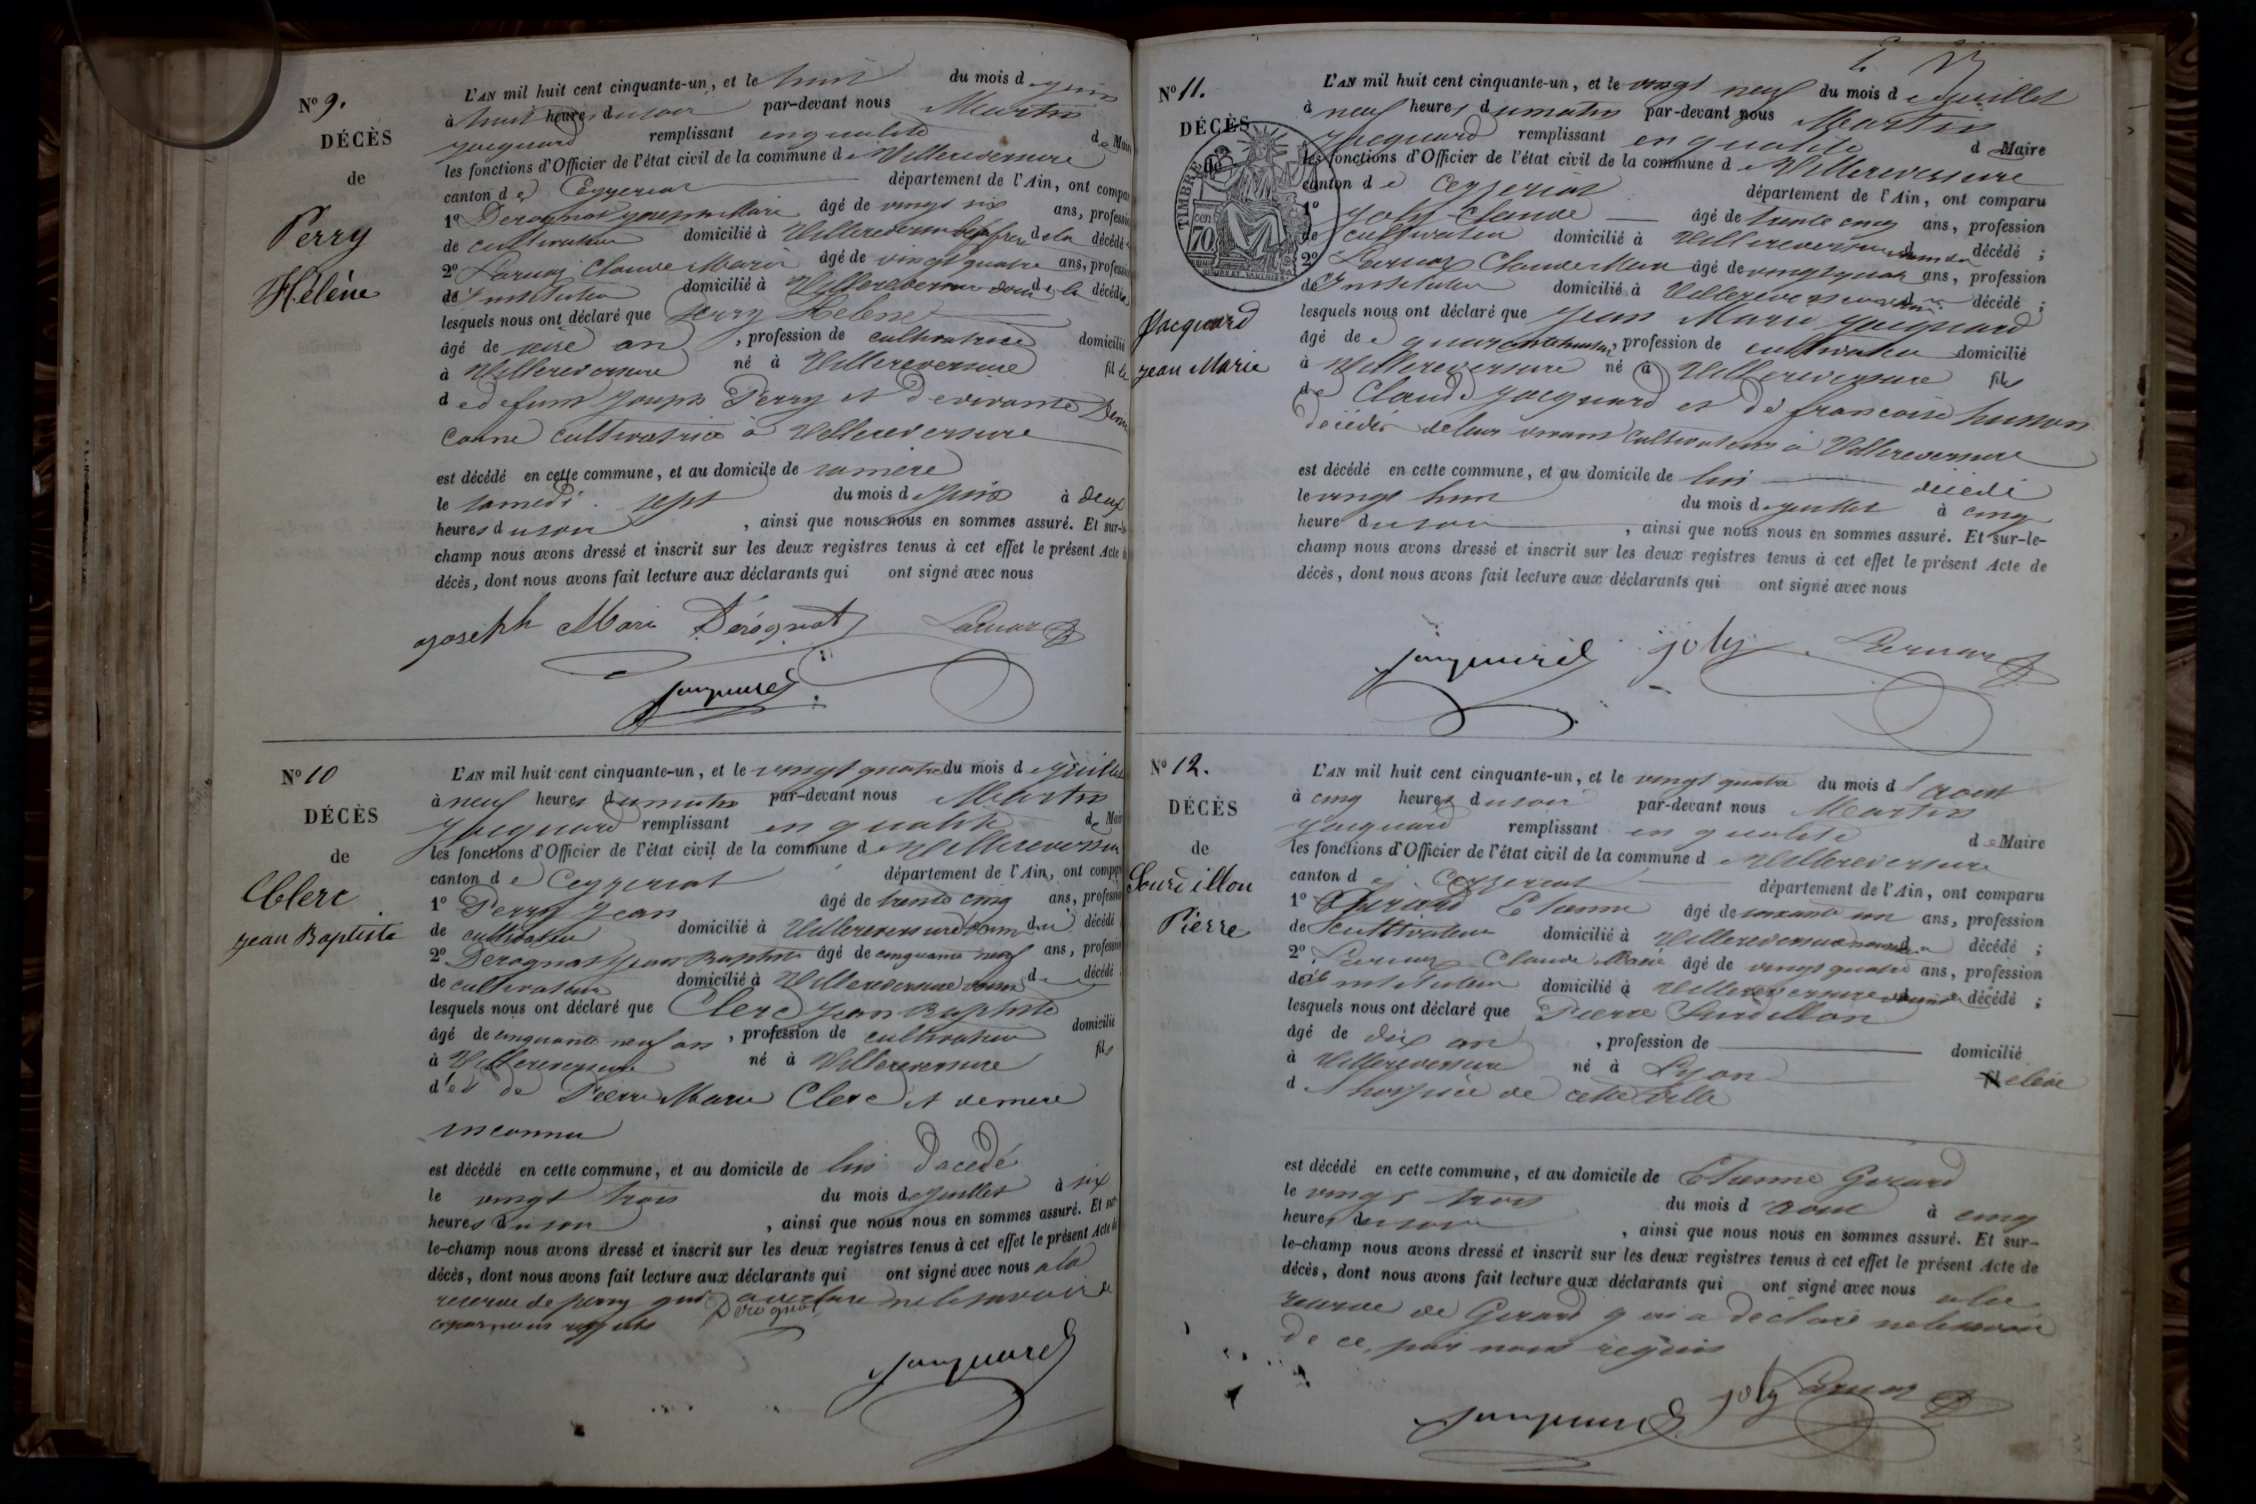 N° 9.
DÉCÈS
de
Perry
Hélène
L'AN mil huit cent cinquante-un, et le huit du mois de juin
à huit heures du soir par-devant nous Martin
Jacquard remplissant en qualité de Maire
les fonctions d'Officier de l'état civil de la commune de Villereversure
canton de Ceyzeriat département de l'Ain, ont compar
1° Derognat Joseph Marie âgé de vingt six ans, profession
de cultivateur domicilié à Villereversure beau frère de la décédée
2° Larnaz Claude Marie âgé de vingt quatre ans, profession
de Instituteur domicilié à Villereversure de la décédée
lesquels nous ont déclaré que Perry Helene
âgé de ans, profession de cultivatrice domicilié
à Villereversure né à Villereversure fille
de defunt Joseph Perry et de vivante
cultivatrice à Villereversure
est décédé en cette commune, et au domicile de sa mère
le samedi sept du mois de juin à deux
heures du soir, ainsi que nous nous en sommes assuré. Et sur-le-
champ nous avons dressé et inscrit sur les deux registres tenus à cet effet le présent Acte de
décès, dont nous avons fait lecture aux déclarants qui ont signé avec nous
Joseph Marie Dérognat Larnaz
Jacquard
N° 10
DÉCÈS
de
Clerc
Jean Baptiste
L'AN mil huit cent cinquante-un, et le vingt quatre du mois de juillet
à neuf heures du matin par-devant nous Martin
Jacquard remplissant en qualité de Maire
les fonctions d'Officier de l'état civil de la commune de Villereversure
canton de Ceyzeriat département de l'Ain, ont comparu
1° Perry Jean âgé de trente cinq ans, profession
de cultivateur domicilié à Villereversure voisin du décédé
2° Derognat Jean Baptiste âgé de cinquante neuf ans, profession
de cultivateur domicilié à Villereversure voisin du décédé
lesquels nous ont déclaré que Clerc Jean Baptiste
âgé de cinquante neuf ans, profession de cultivateur domicilié
à Villereversure né à Villereversure fils
de Pierre Marie Clerc et de mere
inconnue
est décédé en cette commune, et au domicile de lui décedé
le vingt trois du mois de juillet à six
heures du soir, ainsi que nous nous en sommes assuré. Et sur-
le-champ nous avons dressé et inscrit sur les deux registres tenus à cet effet le présent Acte de
décès, dont nous avons fait lecture aux déclarants qui ont signé avec nous a la
reserve de perry qui a declaré ne le savoir de
ce par nous requis Dérognat
Jacquard
N° 11.
DÉCÈS
de
TIMBRE
70 cen
Jacquard
Jean Marie
L'AN mil huit cent cinquante-un, et le vingt neuf du mois de Juillet
à neuf heures du matin par-devant nous Martin
Jacquard remplissant en qualité de Maire
les fonctions d'Officier de l'état civil de la commune de Villereversure
canton de Ceyzeriat département de l'Ain, ont comparu
1° Joly Claude âgé de trente cinq ans, profession
de cultivateur domicilié à Villereversure voisin du décédé ;
2° Larnaz Claude Marie âgé de vingt quatre ans, profession
de Instituteur domicilié à Villereversure voisin du décédé ;
lesquels nous ont déclaré que Jean Marie Jacquard
âgé de quarante ans, profession de cultivateur domicilié
à Villereversure né à Villereversure fils
de Claude Jacquard et de francoise husson
décédés de leur vivant cultivateurs à Villereversure
est décédé en cette commune, et au domicile de lui décédé
le vingt huit du mois de juillet à cinq
heure du soir, ainsi que nous nous en sommes assuré. Et sur-le-
champ nous avons dressé et inscrit sur les deux registres tenus à cet effet le présent Acte de
décès, dont nous avons fait lecture aux déclarants qui ont signé avec nous
Jacquard joly Larnaz
N° 12.
DÉCÈS
de
Surdillon
Pierre
L'AN mil huit cent cinquante-un, et le vingt quatre du mois d'août
à cinq heures du soir par-devant nous Martin
Jacquard remplissant en qualité de Maire
les fonctions d'Officier de l'état civil de la commune de Villereversure
canton de Ceyzeriat département de l'Ain, ont comparu
1° Gerard Etienne âgé de soixante un ans, profession
de cultivateur domicilié à Villereversure décédé ;
2° Larnaz Claude Marie âgé de vingt quatre ans, profession
de Instituteur domicilié à Villereversure voisin du décédé ;
lesquels nous ont déclaré que Pierre Surdillon
âgé de dix ans, profession de domicilié
à Villereversure né à Lyon élève
de l'hospice de cette ville
est décédé en cette commune, et au domicile de Etienne Gerard
le vingt trois du mois d'aout à cinq
heures du soir, ainsi que nous nous en sommes assuré. Et sur-
le-champ nous avons dressé et inscrit sur les deux registres tenus à cet effet le présent Acte de
décès, dont nous avons fait lecture aux déclarants qui ont signé avec nous a la
reserve de Gerard qui a declaré ne le savoir
de ce par nous requis
Jacquard joly Larnaz